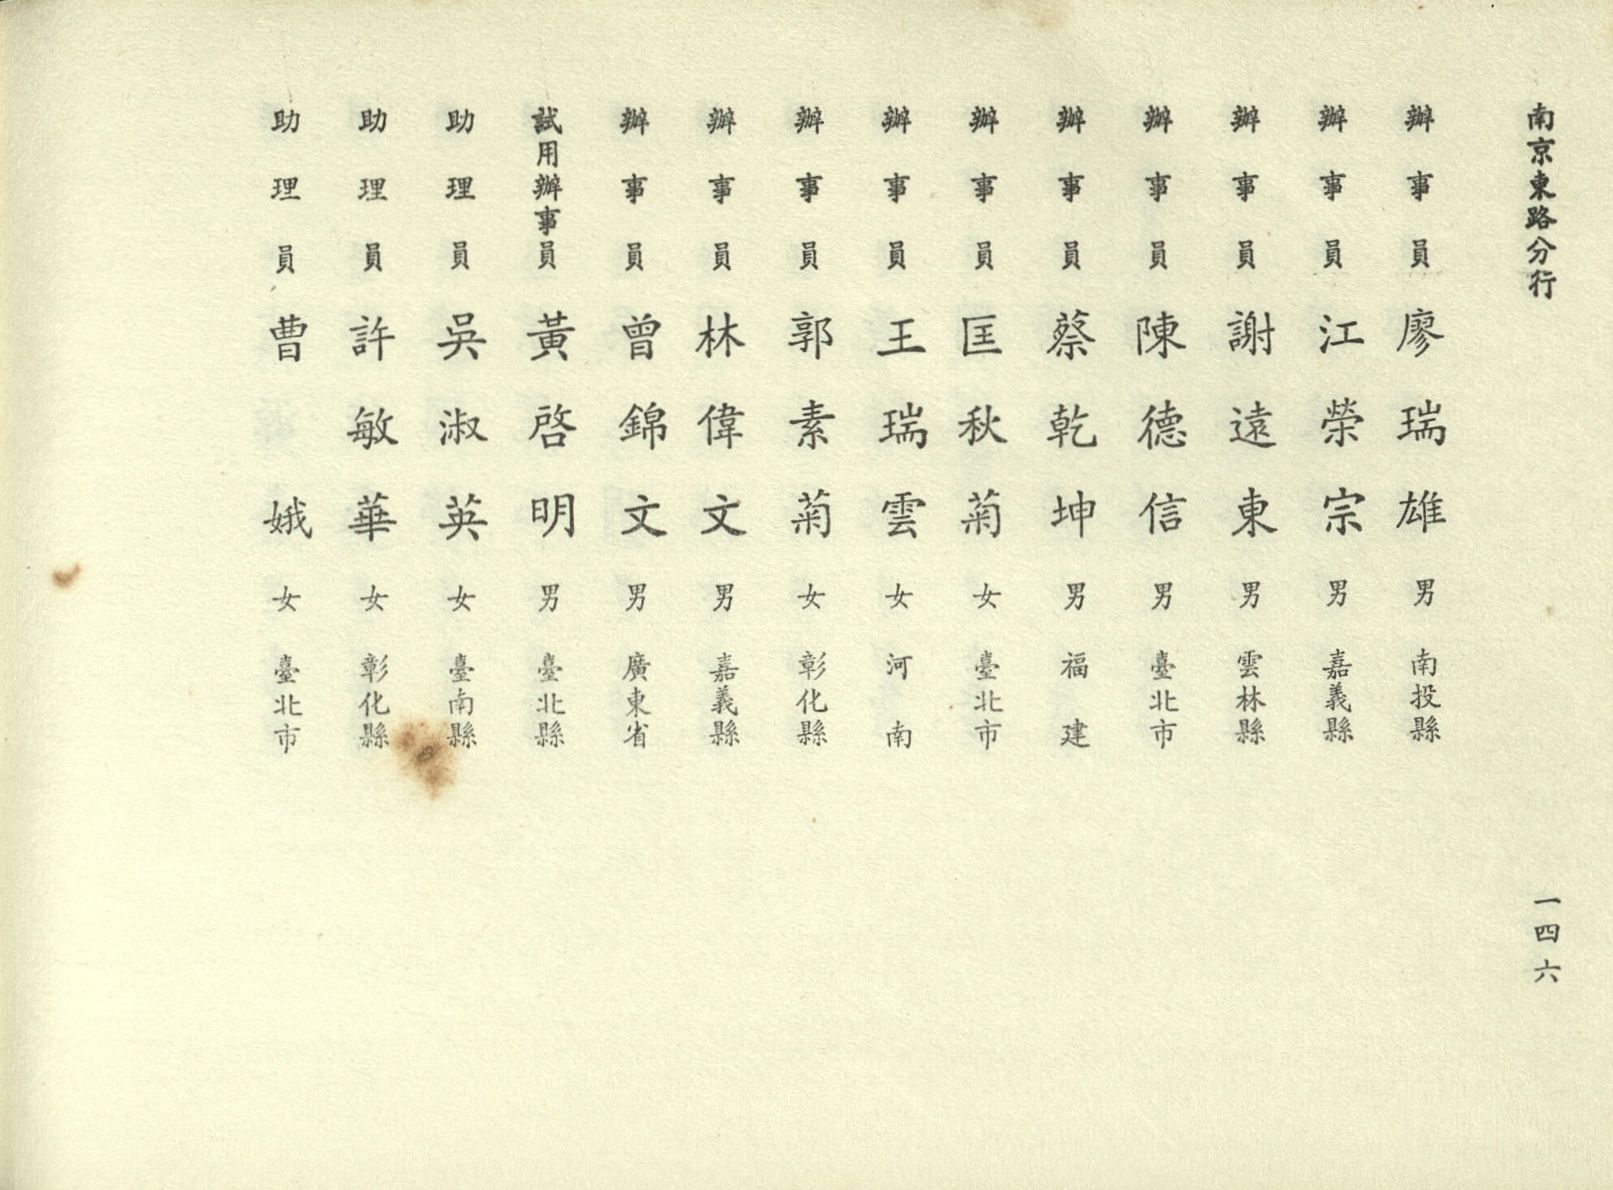 南京東路分行
一四六
辦事員 廖瑞雄 男 南投縣
辦事員 江榮宗 男 嘉義縣
辦事員 謝遠東 男 雲林縣
辦事員 陳德信 男 臺北市
辦事員 蔡乾坤 男 福建
辦事員 匡秋菊 女 臺北市
辦事員 王瑞雲 女 河南
辦事員 郭素菊 女 彰化縣
辦事員 林偉文 男 嘉義縣
辦事員 曾錦文 男 廣東省
試用辦事員 黃啓明 男 臺北縣
助理員 吳淑英 女 臺南縣
助理員 許敏華 女 彰化縣
助理員 曹娥 女 臺北市